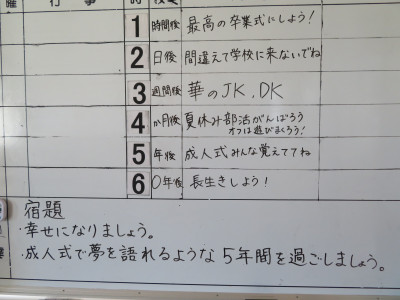 曜 行 事 時
1 時間後 最高の卒業式にしよう!
2 日後 間違えて学校に来ないでね
3 週間後 華のJK.DK
4 か月後 夏休み部活がんばろう
オフは遊びまくろう!
5 年後 成人式みんな覚えててね
6 0年後 長生きしよう!
宿題
・幸せになりましょう。
・成人式で夢を語れるような5年間を過ごしましょう。